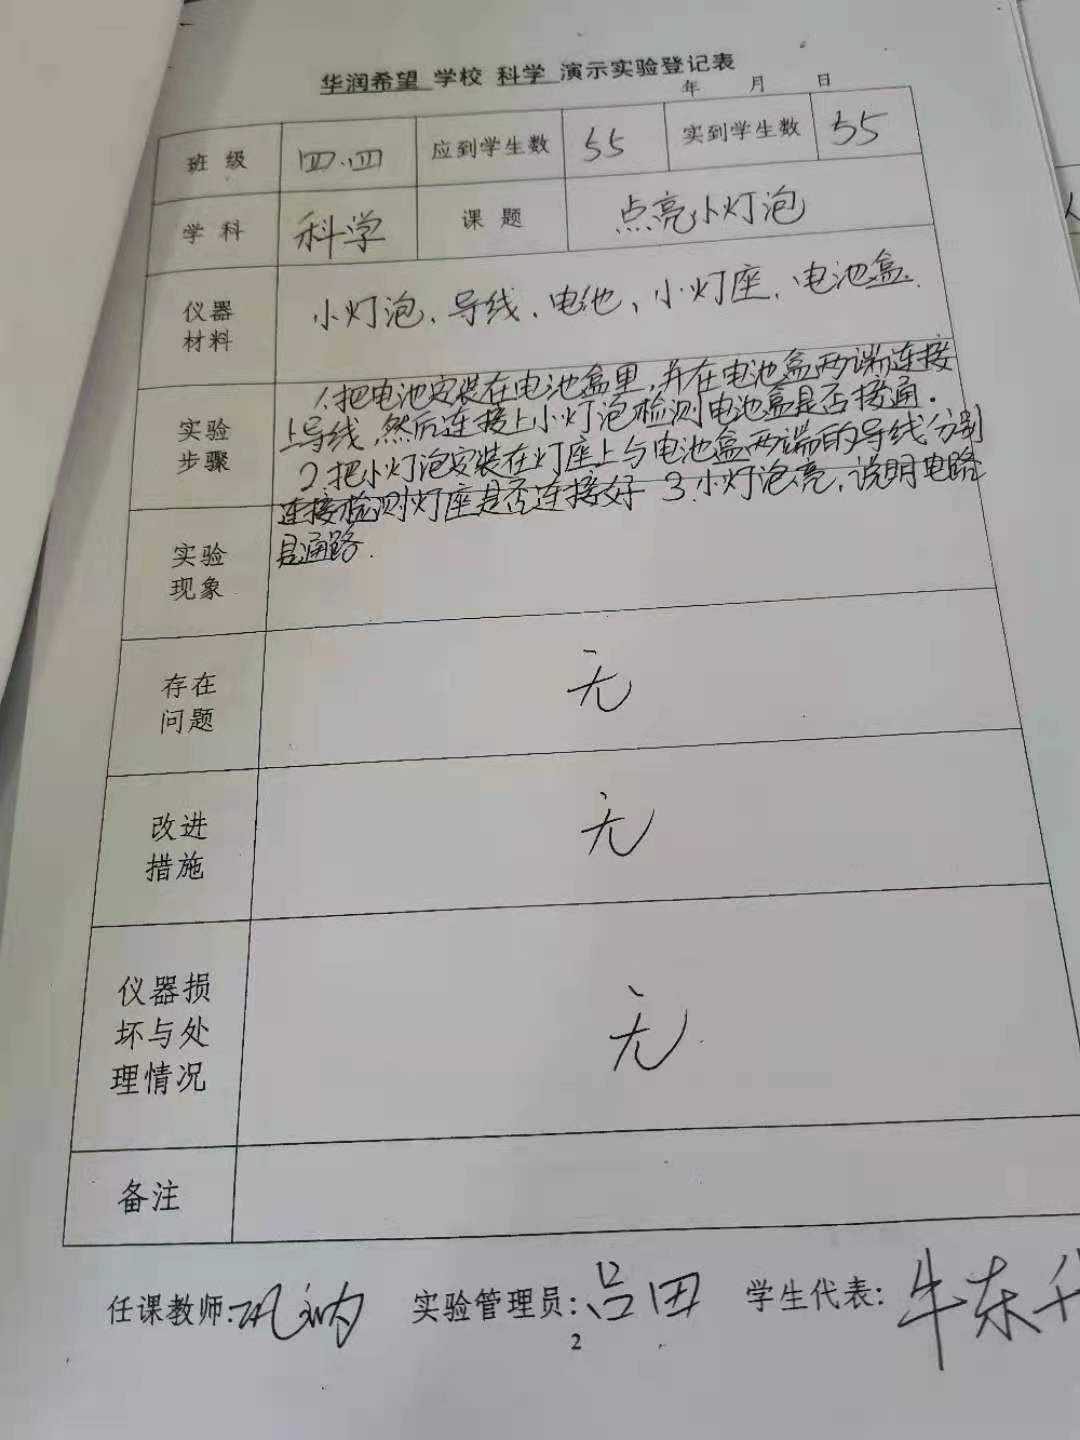 华润希望 学校 科学 演示实验登记表
年 月 日
班 级 四.四 应到学生数 55 实到学生数 55
学 科 科学 课 题 点亮小灯泡
仪器材料 小灯泡、导线、电池、小灯座、电池盒.
实验步骤
1.把电池安装在电池盒里,并在电池盒两端连接
上导线,然后连接上小灯泡检测电池盒是否接通.
2.把小灯泡安装在灯座上与电池盒两端的导线分别
连接检测灯座是否连接好 3.小灯泡亮,说明电路
是通路.
实验现象
存在问题 无
改进措施 无
仪器损坏与处理情况 无
备注
任课教师: 实验管理员:吕田 学生代表:牛东
2